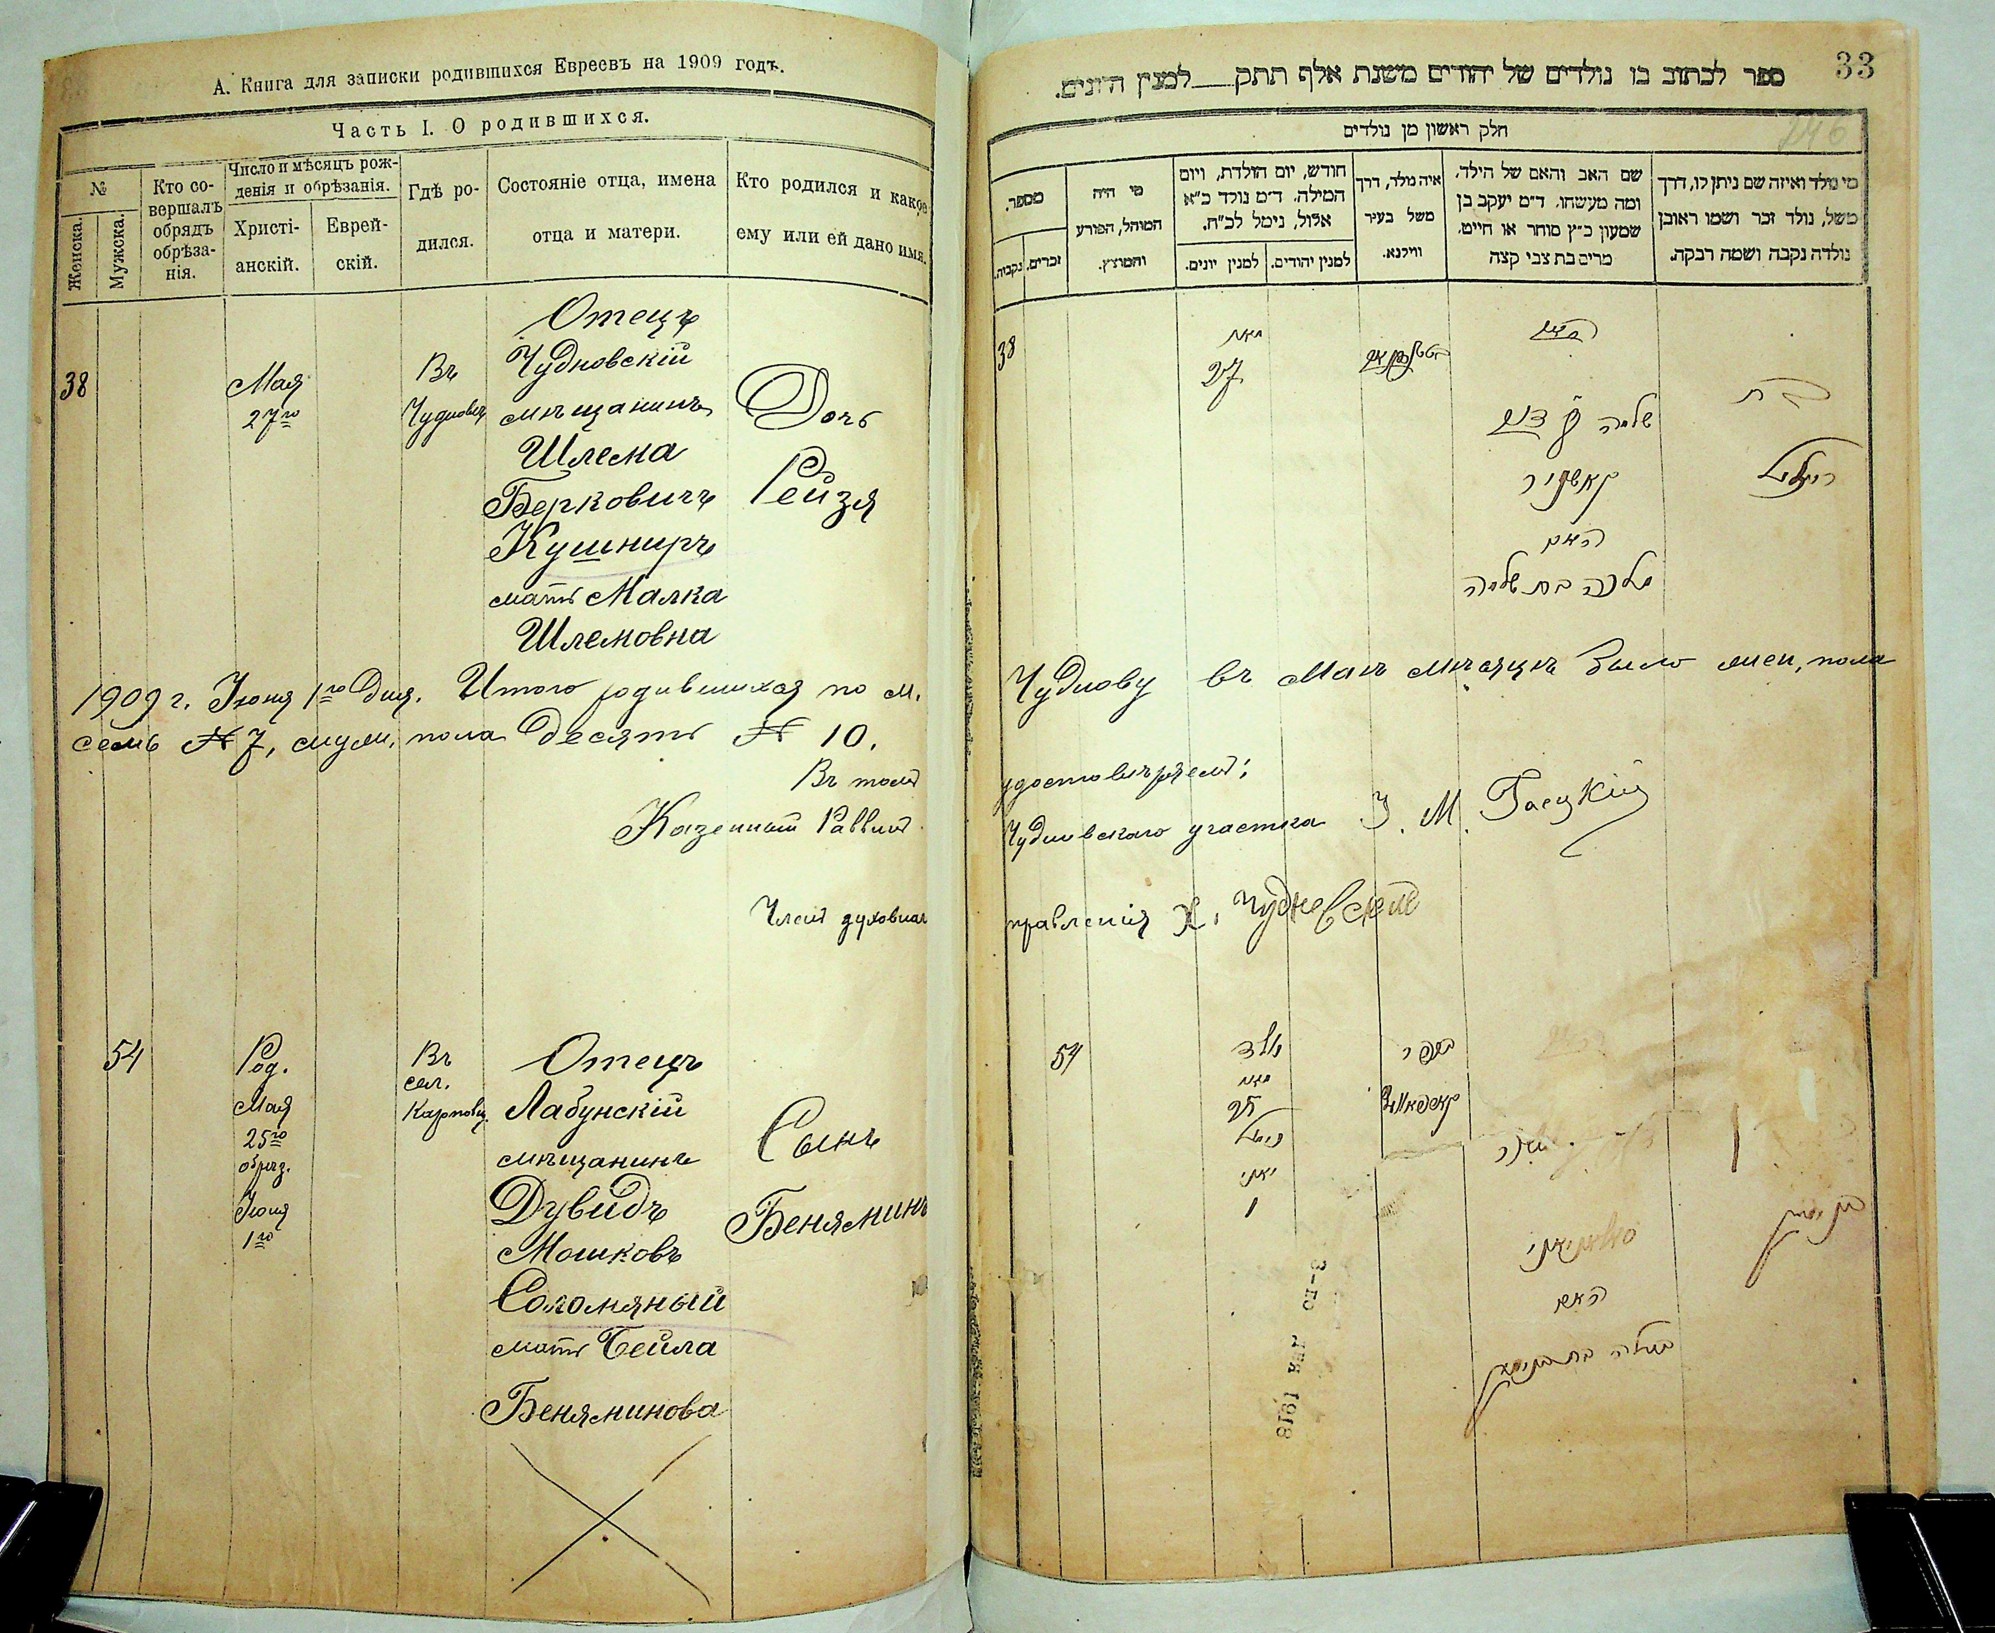 А. Книга для записки родившихся Евреевъ на 1909 годъ.
Часть I. О родившихся.
№
Женска.
Мужска.
Кто со-
вершалъ
обрядъ
обрѣза-
нія.
Число и мѣсяцъ рож-
денія и обрѣзанія.
Христі-
анскій.
Еврей-
скій.
Гдѣ ро-
дился.
Состояніе отца, имена
отца и матери.
Кто родился и какое
ему или ей дано имя.
38
Мая
27го
Въ
Чудновѣ
Отецъ
Чудновскій
мѣщанинъ
Шлема
Берковичъ
Кушниръ
мать Малка
Шлемовна
Дочь
Рейзя
1909 г. Іюня 1го Дня. Итого родившихся по м.
семь № 7, муж. пола Десять № 10.
Въ томъ
Казенный Раввинъ
Членъ духовнаго
54
Род.
Мая
25го
обрѣз.
Іюня
1го
Въ
сел.
Карповц.
Отецъ
Лабунскій
мѣщанинъ
Дувидъ
Мошковъ
Соломяный
мать Бейла
Беняминова
Сынъ
Беняминъ
33
ספר לכתוב בו נולדים של יהודים משנת אלף תתק למנין היונים.
חלק ראשון מן נולדים
מספר.
נקבות.
זכרים.
מי היה
המוהל, הפורע
והמוצץ.
חודש, יום הולדת, ויום
המילה. ד״מ נולד כ״א
אלול, נימל לכ״ח.
למנין יונים.
למנין יהודים.
איה נולד, דרך
משל בעיר
ווילנא.
שם האב והאם של הילד,
ומה מעשהו. ד״מ יעקב בן
שמעון כ״ץ סוחר או חייט,
מרים בת צבי קצה
מי נולד ואיזה שם ניתן לו, דרך
משל, נולד זכר ושמו ראובן
נולדה נקבה ושמה רבקה.
38
מאי
27
האב
שלמה
קושניר
האם
מלכה בת שלמה
בת
רייזיל
Чуднову въ Маѣ мѣсяцѣ было жен. пола
удостовѣряемъ:
Чудновскаго участка І. М. Гаецкій
правленія
54
נולד
מאי
25
נימול
יוני
1
בכפר
האם
ביילה בת בנימין
בנימין
1918